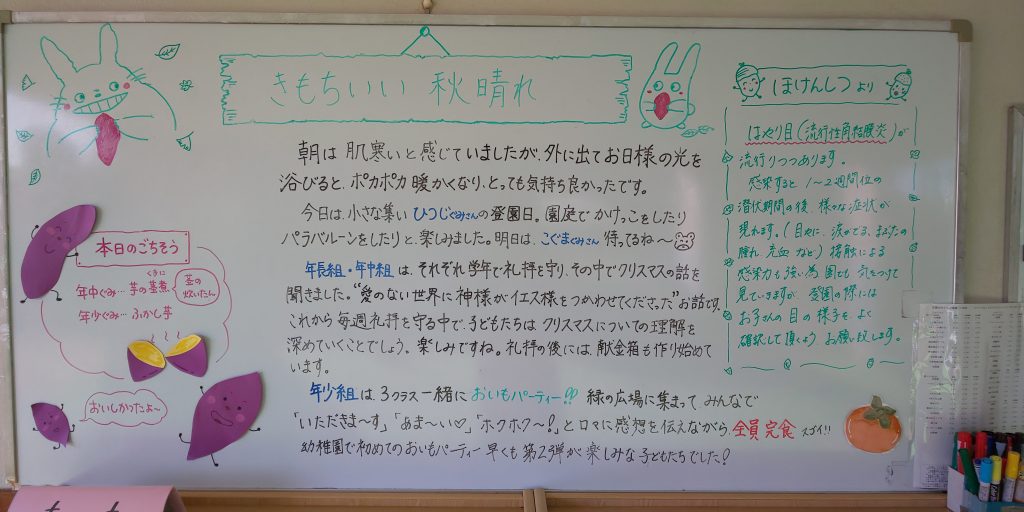 きもちいい 秋晴れ
朝は 肌寒いと感じていましたが、外に出てお日様の光を
浴びると、ポカポカ 暖かくなり、とっても気持ち良かったです。
今日は、小さな集い ひつじぐみさんの登園日。園庭でかけっこをしたり
パラバルーンをしたりと、楽しみました。明日は、こぐまぐみさん 待ってるね〜
年長組・年中組は、それぞれ学年で礼拝を守り、その中でクリスマスの話を
聞きました。“愛のない世界に神様がイエス様をつかわせてくださった”お話です。
これから毎週礼拝を守る中で、子どもたちは クリスマスについての理解を
深めていくことでしょう。楽しみですね。礼拝の後には、献金箱も作り始めて
います。
年少組は、3クラス一緒に おいもパーティー!! 緑の広場に集まって みんなで
「いただきま〜す」「あま〜い♡」「ホクホク〜!」と口々に感想を伝えながら、全員完食 スゴイ!!
幼稚園で初めてのおいもパーティー 早くも 第2弾が楽しみな子どもたちでした!
本日のごちそう
年中ぐみ…芋の茎煮
くきに
茎の
炊いたん
年少ぐみ…ふかし芋
おいしかったよ〜
ほけんしつより
はやり目(流行性角結膜炎)が
流行りつつあります。
感染すると 1〜2週間位の
潜伏期間の後、様々な症状が
現れます。(目やに、涙がでる、まぶたの
腫れ、充血 など) 接触による
感染力も強い為 園でも 気をつけて
見ていきますが、登園の際には
お子さんの目の様子を よく
確認して頂くよう お願い致します。